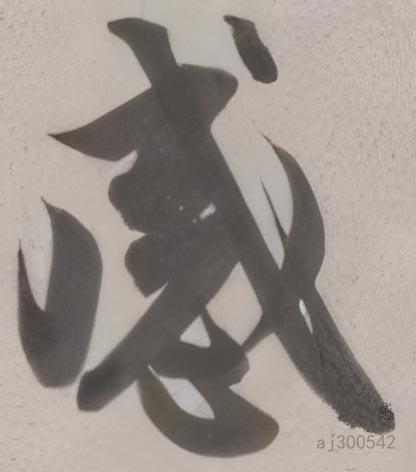 感
aj300542